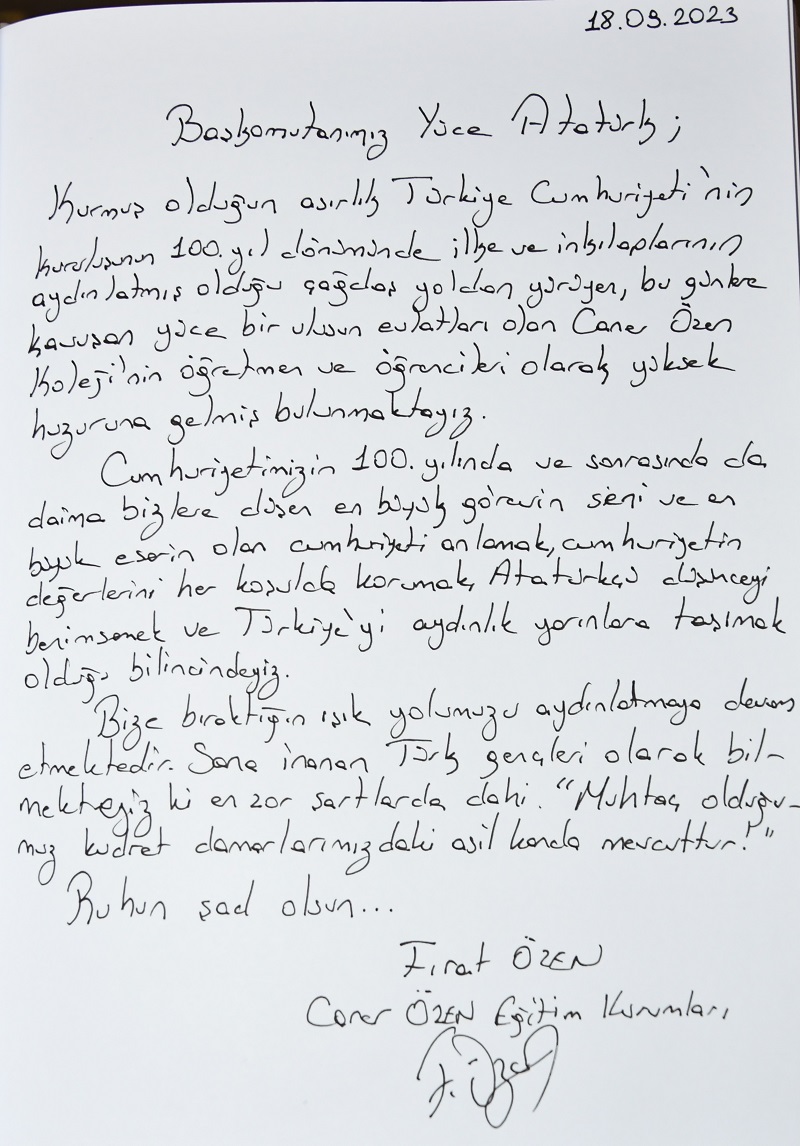 18.09.2023
Başkomutanımız Yüce Atatürk;
Kurmuş olduğun asırlık Türkiye Cumhuriyeti'nin
kuruluşunun 100. yıl dönümünde ilke ve inkılaplarının
aydınlatmış olduğu çağdaş yoldan yürüyen, bu günlere
kavuşan yüce bir ulusun evlatları olan Caner Özen
Koleji'nin öğretmen ve öğrencileri olarak yüksek
huzuruna gelmiş bulunmaktayız.
Cumhuriyetimizin 100. yılında ve sonrasında da
daima bizlere düşen en büyük görevin seni ve en
büyük eserin olan cumhuriyeti anlamak, cumhuriyetin
değerlerini her koşulda korumak, Atatürkçü düşünceyi
benimsemek ve Türkiye'yi aydınlık yarınlara taşımak
olduğu bilincindeyiz.
Bize bıraktığın ışık yolumuzu aydınlatmaya devam
etmektedir. Sana inanan Türk gençleri olarak bil-
mekteyiz ki en zor şartlarda dahi. "Muhtaç olduğu-
muz kudret damarlarımızdaki asil kanda mevcuttur!"
Ruhun şad olsun...
Fırat ÖZEN
Caner ÖZEN Eğitim Kurumları
F. Özen